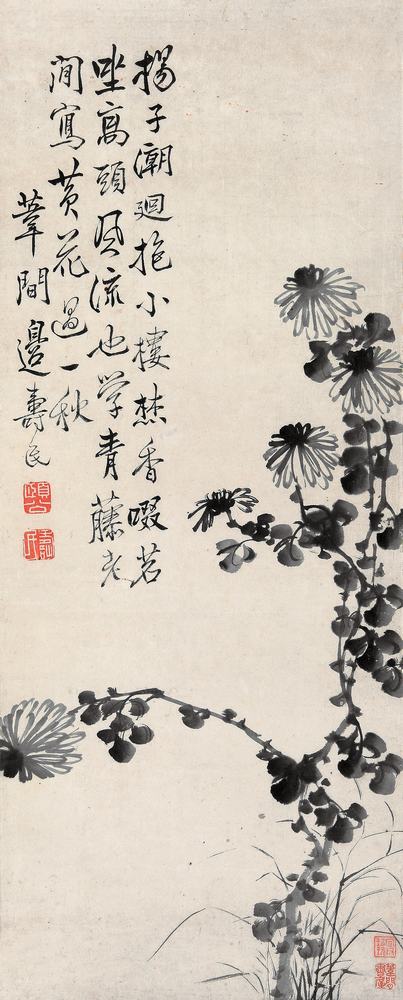 揚子潮迴抱小樓焚香啜茗
坐高頭風流也學青藤老
閒寫黃花過一秋
葦間邊壽民
頤公
壽民